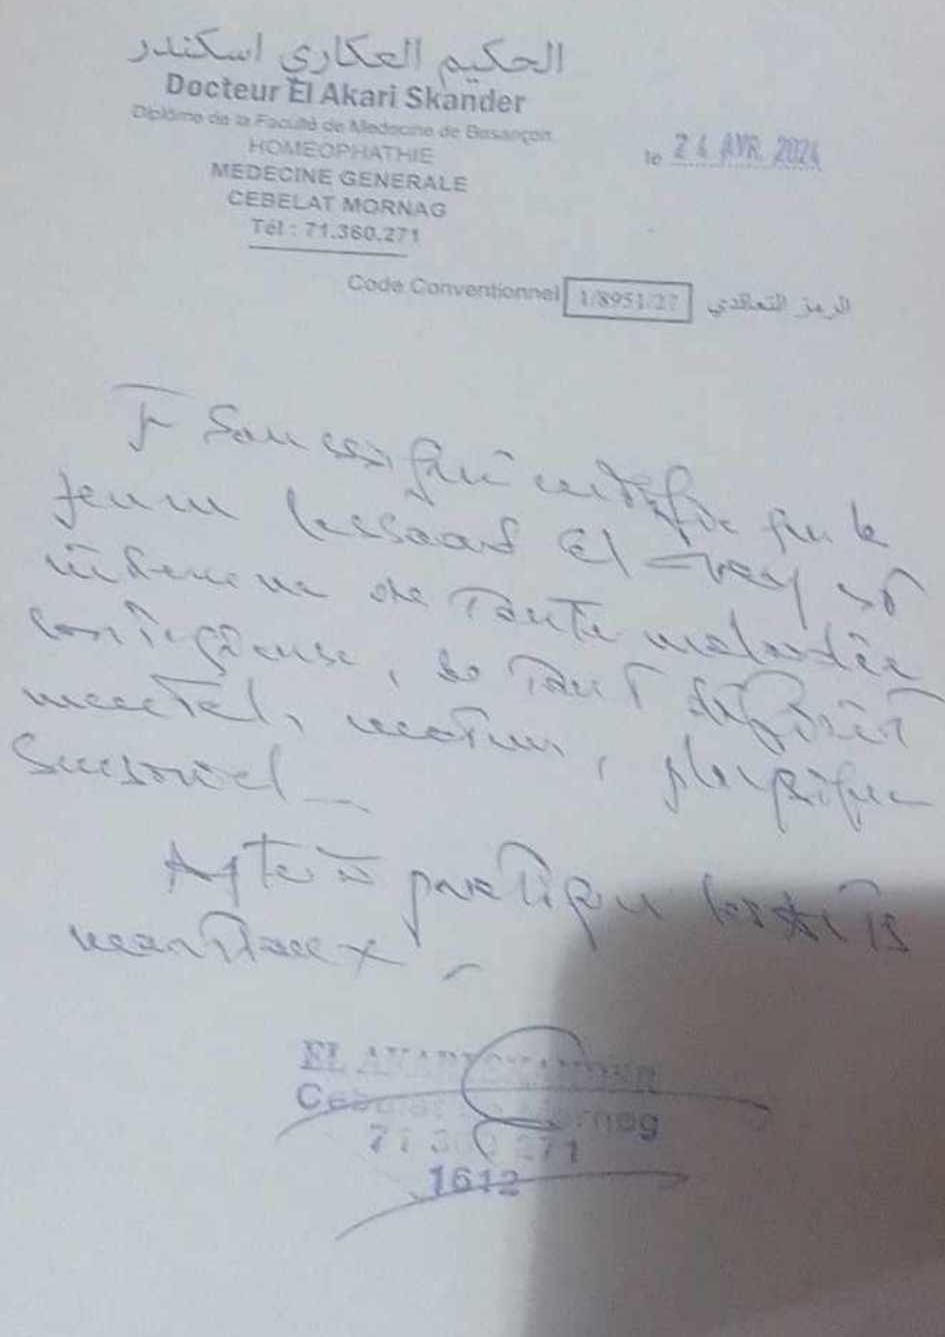 الحكيم العكاري اسكندر
Docteur El Akari Skander
Diplôme de la Faculté de Medecine de Besançon
HOMEOPHATHIE
MEDECINE GENERALE
CEBELAT MORNAG
Tél : 71.360.271
le 24 AVR. 2024
Code Conventionnel 1/8951/27 الرمز التعاقدي
le
jeune El
de toute maladie
contagieuse, de tout déficit
mental, moteur, physique
sensoriel
Apte à pratiquer les arts
martiaux.
EL AKARI SKANDER
Cebelat Mornag
71 360 271
1612